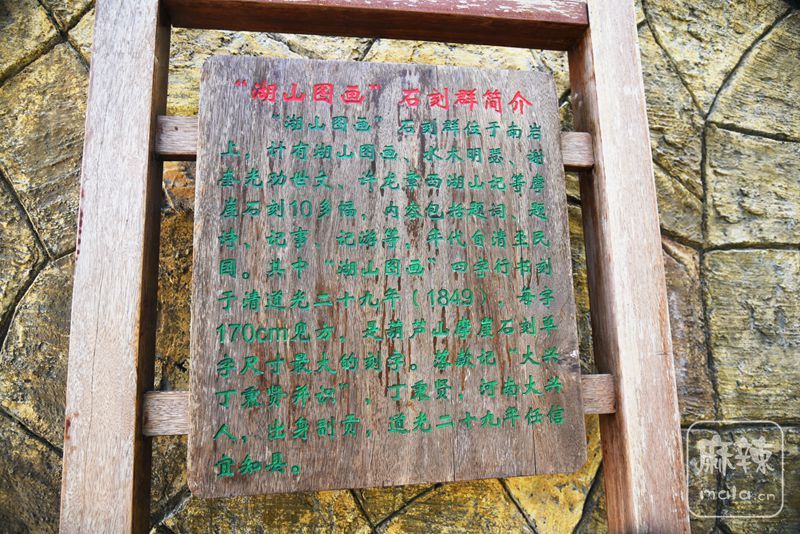 “湖山图画”石刻群简介
“湖山图画”石刻群位于南岩
上，计有湖山图画、水木明瑟、谢
奎光劝世文、许龙章西湖山记等摩
崖石刻10多幅，内容包括题词、题
诗、记事、记游等，年代自清至民
国。其中“湖山图画”四字行书刻
于清道光二十九年（1849），每字
170cm见方，是葫芦山摩崖石刻单
字尺寸最大的刻字。落款记“大兴
丁秉贤并识”，丁秉贤，河南大兴
人，出身副贡，道光二十九年任信
宜知县。
麻辣
mala.cn